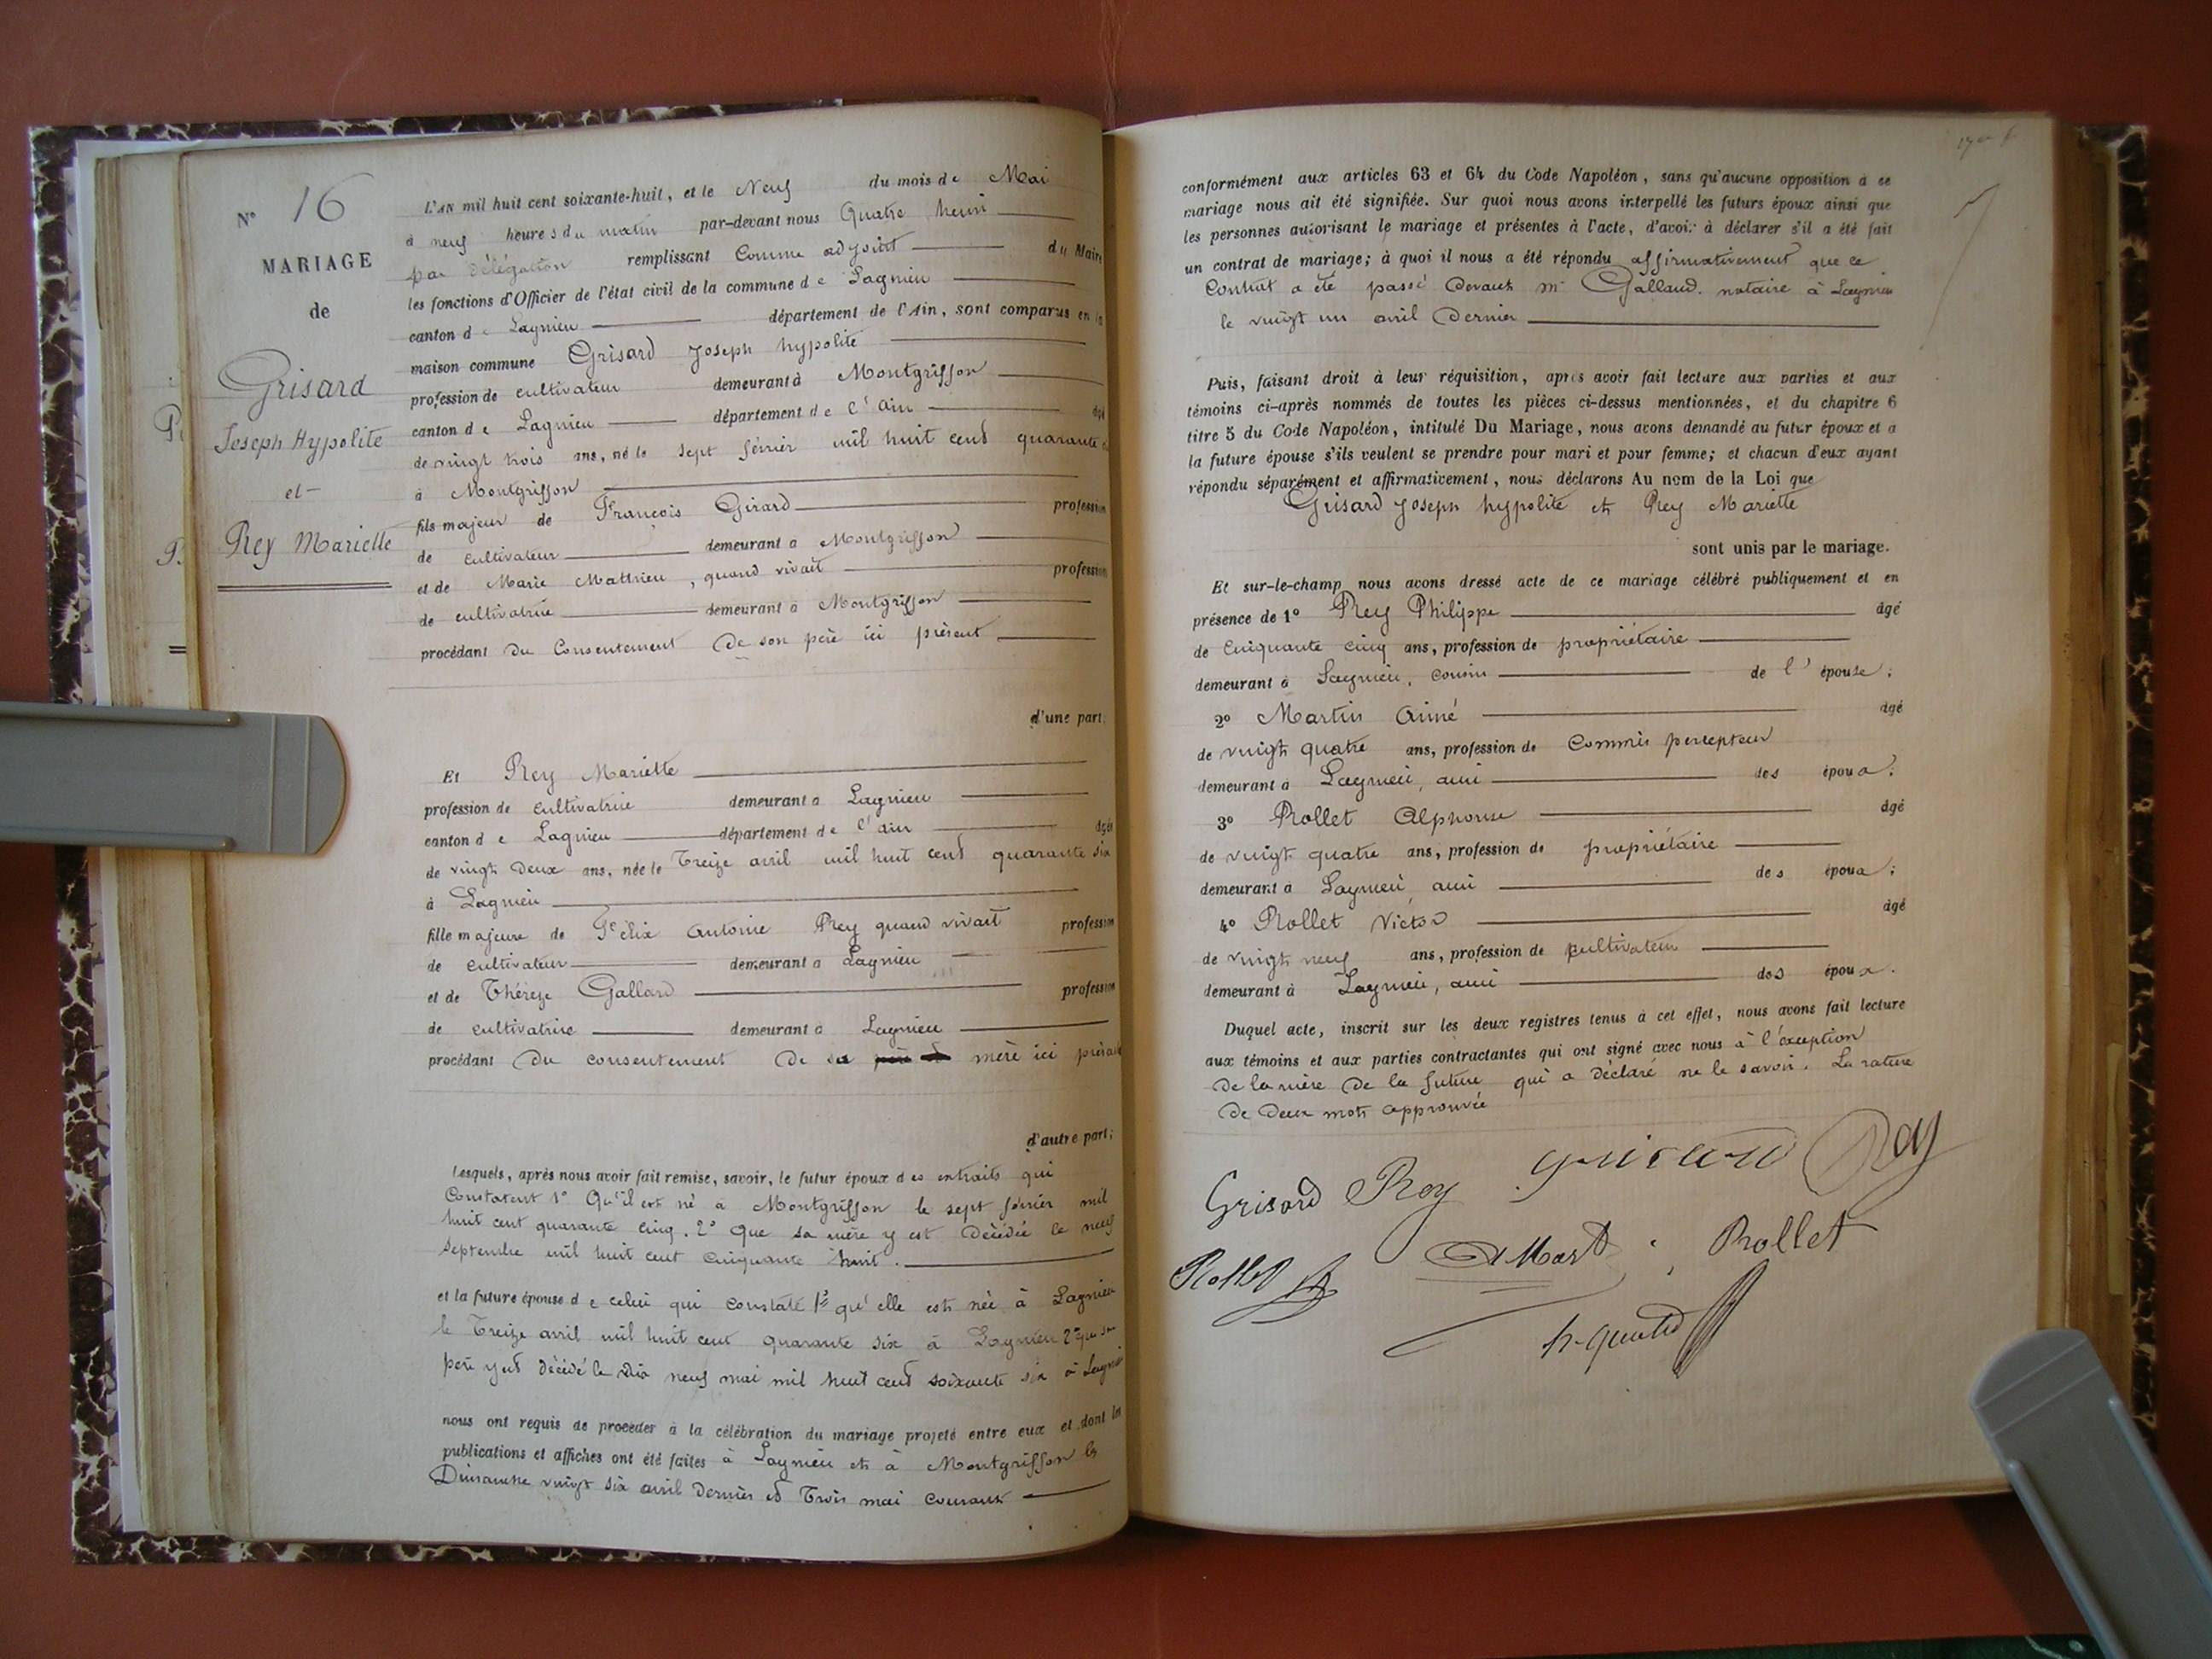 N° 16
MARIAGE
de
Grisard
Joseph Hypolite
et
Rey Mariette
L'AN mil huit cent soixante-huit, et le Neuf du mois de Mai
à neuf heures du matin par-devant nous Quatre henri
par Délégation remplissant Comme adjoint du Maire
les fonctions d'Officier de l'état civil de la commune de Lagnieu
canton de Lagnieu département de l'Ain, sont comparus en la
maison commune Grisard Joseph hypolite
profession de cultivateur demeurant à Montgriffon
canton de Lagnieu département de l'ain âgé
de vingt trois ans, né le sept février mil huit cent quarante
à Montgriffon
fils majeur de François Girard profession
de cultivateur demeurant à Montgriffon
et de Marie Matthieu, quand vivait profession
de cultivatrice demeurant à Montgriffon
procédant du Consentement de son père ici présent
d'une part,
Et Rey Mariette
profession de cultivatrice demeurant à Lagnieu
canton de Lagnieu département de l'ain âgée
de vingt deux ans, née le Treize avril mil huit cent quarante six
à Lagnieu
fille majeure de Félix Antoine Rey quand vivait profession
de cultivateur demeurant à Lagnieu
et de Thérèze Gallard profession
de cultivatrice demeurant à Lagnieu
procédant du consentement de sa mère ici présente
d'autre part;
Lesquels, après nous avoir fait remise, savoir, le futur époux des extraits qui
Constatent 1° Qu'il est né à Montgriffon le sept février mil
huit cent quarante cinq. 2° Que sa mère y est décédée le neuf
septembre mil huit cent cinquante huit.
et la future épouse de celui qui constate 1° qu'elle est née à Lagnieu
le Treize avril mil huit cent quarante six à Lagnieu 2° que son
père y est décédé le dix neuf mai mil huit cent soixante six à Lagnieu
nous ont requis de procéder à la célébration du mariage projeté entre eux et dont les
publications et affiches ont été faites à Lagnieu et à Montgriffon les
Dimanche vingt six avril dernier et Trois mai courant
conformément aux articles 63 et 64 du Code Napoléon, sans qu'aucune opposition à ce
mariage nous ait été signifiée. Sur quoi nous avons interpellé les futurs époux ainsi que
les personnes autorisant le mariage et présentes à l'acte, d'avoir à déclarer s'il a été fait
un contrat de mariage; à quoi il nous a été répondu affirmativement que ce
Contrat a été passé devant Mr Galland notaire à Lagnieu
le vingt un avril dernier
Puis, faisant droit à leur réquisition, après avoir fait lecture aux parties et aux
témoins ci-après nommés de toutes les pièces ci-dessus mentionnées, et du chapitre 6
titre 5 du Code Napoléon, intitulé Du Mariage, nous avons demandé au futur époux et à
la future épouse s'ils veulent se prendre pour mari et pour femme; et chacun d'eux ayant
répondu séparément et affirmativement, nous déclarons Au nom de la Loi que
Grisard Joseph hypolite et Rey Mariette
sont unis par le mariage.
Et sur-le-champ nous avons dressé acte de ce mariage célébré publiquement et en
présence de 1° Rey Philippe âgé
de Cinquante cinq ans, profession de propriétaire
demeurant à Lagnieu, cousin de l'épouse;
2° Martin Aimé âgé
de vingt quatre ans, profession de Commis percepteur
demeurant à Lagnieu, ami des époux;
3° Rollet Alphonse âgé
de vingt quatre ans, profession de propriétaire
demeurant à Lagnieu, ami des époux;
4° Rollet Victor âgé
de vingt neuf ans, profession de cultivateur
demeurant à Lagnieu, ami des époux.
Duquel acte, inscrit sur les deux registres tenus à cet effet, nous avons fait lecture
aux témoins et aux parties contractantes qui ont signé avec nous à l'exception
de la mère de la future qui a déclaré ne le savoir. La rature
de deux mots approuvée
Grisard Rey Grisard Rey
Rollet A Mart Rollet